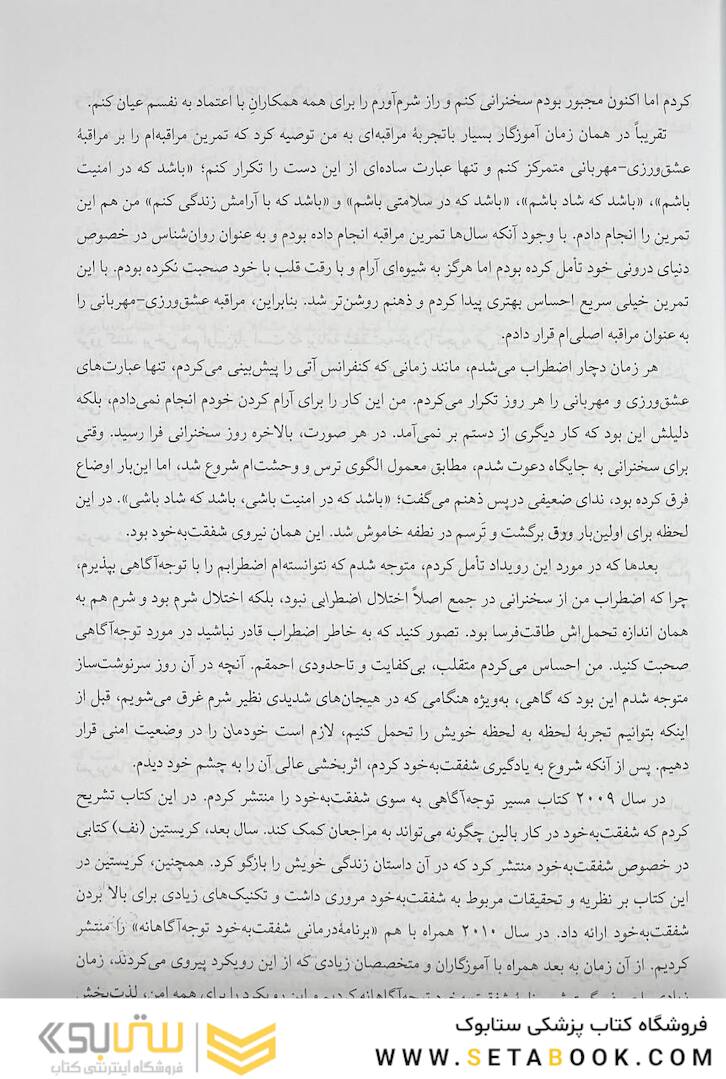 کردم اما اکنون مجبور بودم سخنرانی کنم و راز شرم‌آورم را برای همه همکارانِ با اعتماد به نفسم عیان کنم.
تقریباً در همان زمان آموزگار بسیار باتجربهٔ مراقبه‌ای به من توصیه کرد که تمرین مراقبه‌ام را بر مراقبهٔ
عشق‌ورزی–مهربانی متمرکز کنم و تنها عبارت ساده‌ای از این دست را تکرار کنم؛ «باشد که در امنیت
باشم»، «باشد که شاد باشم»، «باشد که در سلامتی باشم» و «باشد که با آرامش زندگی کنم» من هم این
تمرین را انجام دادم. با وجود آنکه سال‌ها تمرین مراقبه انجام داده بودم و به عنوان روان‌شناس در خصوص
دنیای درونی خود تأمل کرده بودم اما هرگز به شیوه‌ای آرام و با رقت قلب با خود صحبت نکرده بودم. با این
تمرین خیلی سریع احساس بهتری پیدا کردم و ذهنم روشن‌تر شد. بنابراین، مراقبه عشق‌ورزی–مهربانی را
به عنوان مراقبه اصلی‌ام قرار دادم.
هر زمان دچار اضطراب می‌شدم، مانند زمانی که کنفرانس آتی را پیش‌بینی می‌کردم، تنها عبارت‌های
عشق‌ورزی و مهربانی را هر روز تکرار می‌کردم. من این کار را برای آرام کردن خودم انجام نمی‌دادم، بلکه
دلیلش این بود که کار دیگری از دستم بر نمی‌آمد. در هر صورت، بالاخره روز سخنرانی فرا رسید. وقتی
برای سخنرانی به جایگاه دعوت شدم، مطابق معمول الگوی ترس و وحشت‌ام شروع شد، اما این‌بار اوضاع
فرق کرده بود، ندای ضعیفی درپس ذهنم می‌گفت؛ «باشد که در امنیت باشی، باشد که شاد باشی». در این
لحظه برای اولین‌بار ورق برگشت و تَرسم در نطفه خاموش شد. این همان نیروی شفقت‌به‌خود بود.
بعدها که در مورد این رویداد تأمل کردم، متوجه شدم که نتوانسته‌ام اضطرابم را با توجه‌آگاهی بپذیرم،
چرا که اضطراب من از سخنرانی در جمع اصلاً اختلال اضطرابی نبود، بلکه اختلال شرم بود و شرم هم به
همان اندازه تحمل‌اش طاقت‌فرسا بود. تصور کنید که به خاطر اضطراب قادر نباشید در مورد توجه‌آگاهی
صحبت کنید. من احساس می‌کردم متقلب، بی‌کفایت و تاحدودی احمقم. آنچه در آن روز سرنوشت‌ساز
متوجه شدم این بود که گاهی، به‌ویژه هنگامی که در هیجان‌های شدیدی نظیر شرم غرق می‌شویم، قبل از
اینکه بتوانیم تجربهٔ لحظه به لحظه خویش را تحمل کنیم، لازم است خودمان را در وضعیت امنی قرار
دهیم. پس از آنکه شروع به یادگیری شفقت‌به‌خود کردم، اثربخشی عالی آن را به چشم خود دیدم.
در سال ۲۰۰۹ کتاب مسیر توجه‌آگاهی به سوی شفقت‌به‌خود را منتشر کردم. در این کتاب تشریح
کردم که شفقت‌به‌خود در کار بالین چگونه می‌تواند به مراجعان کمک کند. سال بعد، کریستین (نف) کتابی
در خصوص شفقت‌به‌خود منتشر کرد که در آن داستان زندگی خویش را بازگو کرد. همچنین، کریستین در
این کتاب بر نظریه و تحقیقات مربوط به شفقت‌به‌خود مروری داشت و تکنیک‌های زیادی برای بالا بردن
شفقت‌به‌خود ارائه داد. در سال ۲۰۱۰ همراه با هم «برنامهٔ‌درمانی شفقت‌به‌خود توجه‌آگاهانه» را منتشر
کردیم. از آن زمان به بعد همراه با آموزگاران و متخصصان زیادی که از این رویکرد پیروی می‌کردند، زمان
فروشگاه کتاب پزشکی ستابوک
WWW.SETABOOK.COM
ستابوک
فروشگاه اینترنتی کتاب